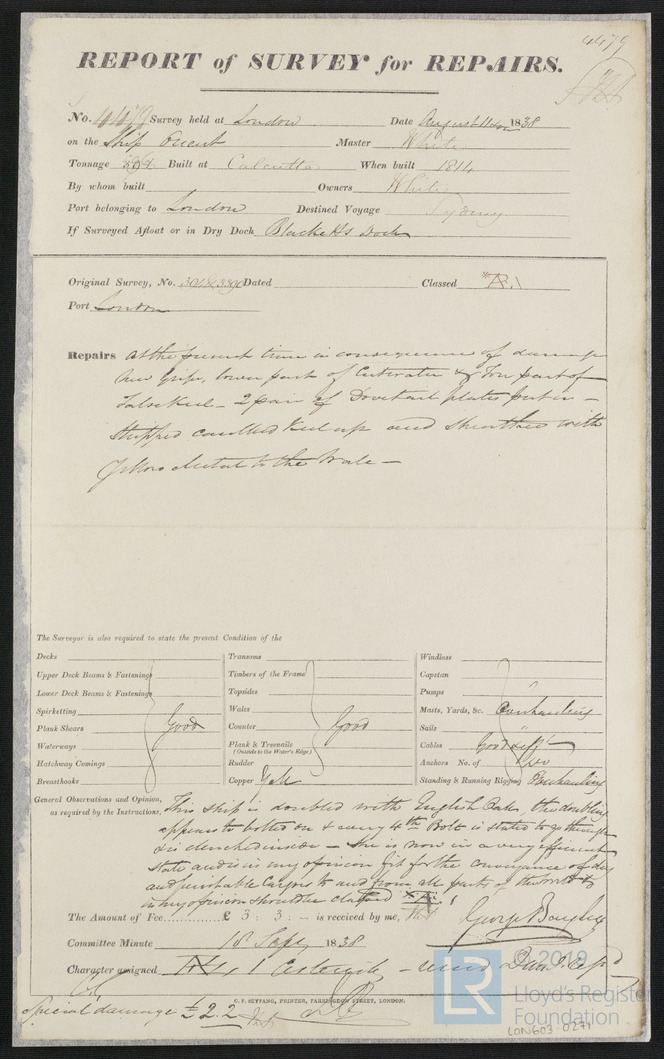 4479
REPORT of SURVEY for REPAIRS.
No. 4479 Survey held at London Date August 11th 1838
on the Ship Orient Master White
Tonnage Built at Calcutta When built 1814
By whom built Owners White
Port belonging to London Destined Voyage Sydney
If Surveyed Afloat or in Dry Dock Blacketts Dock
Original Survey, No. Dated Classed *A.1
Port London
Repairs at the present time in consequence of damage
New gripe, lower part of Cutwater & fore part of
False Keel - 2 pair of Dovetail plates put in -
stripped caulked Keel up and sheathed with
Yellow Metal to the Wale -
The Surveyor is also required to state the present Condition of the
Decks
Upper Deck Beams & Fastenings
Lower Deck Beams & Fastenings
Spirketting
Plank Shears Good
Waterways
Hatchway Comings
Breasthooks
Transoms
Timbers of the Frame
Topsides
Wales
Counter Good
Plank & Treenails
(Outside to the Water's Edge)
Rudder
Copper
Windlass
Capstan
Pumps
Masts, Yards, &c. Overhauling
Sails
Cables Good
Anchors No. of
Standing & Running Rigging Overhauling
General Observations and Opinion, This ship is doubled with English Oak, the doubling
as required by the Instructions. appears to bolted on & every 4th Bolt is stated to go through
& is clenched inside - She is now in a very efficient
State and is in my opinion fit for the conveyance of dry
and perishable Cargoes to and from all parts of the World &
in my opinion should be classed *A.1
The Amount of Fee............ £ 3 : 3 : - is received by me, George Bayley
Committee Minute 18 Sept 1838
Character assigned
C. F. SEYFANG, PRINTER, FARRINGDON STREET, LONDON.
Special damage £2.2
LR
© 2019
Lloyd's Register
Foundation
LON603-0271